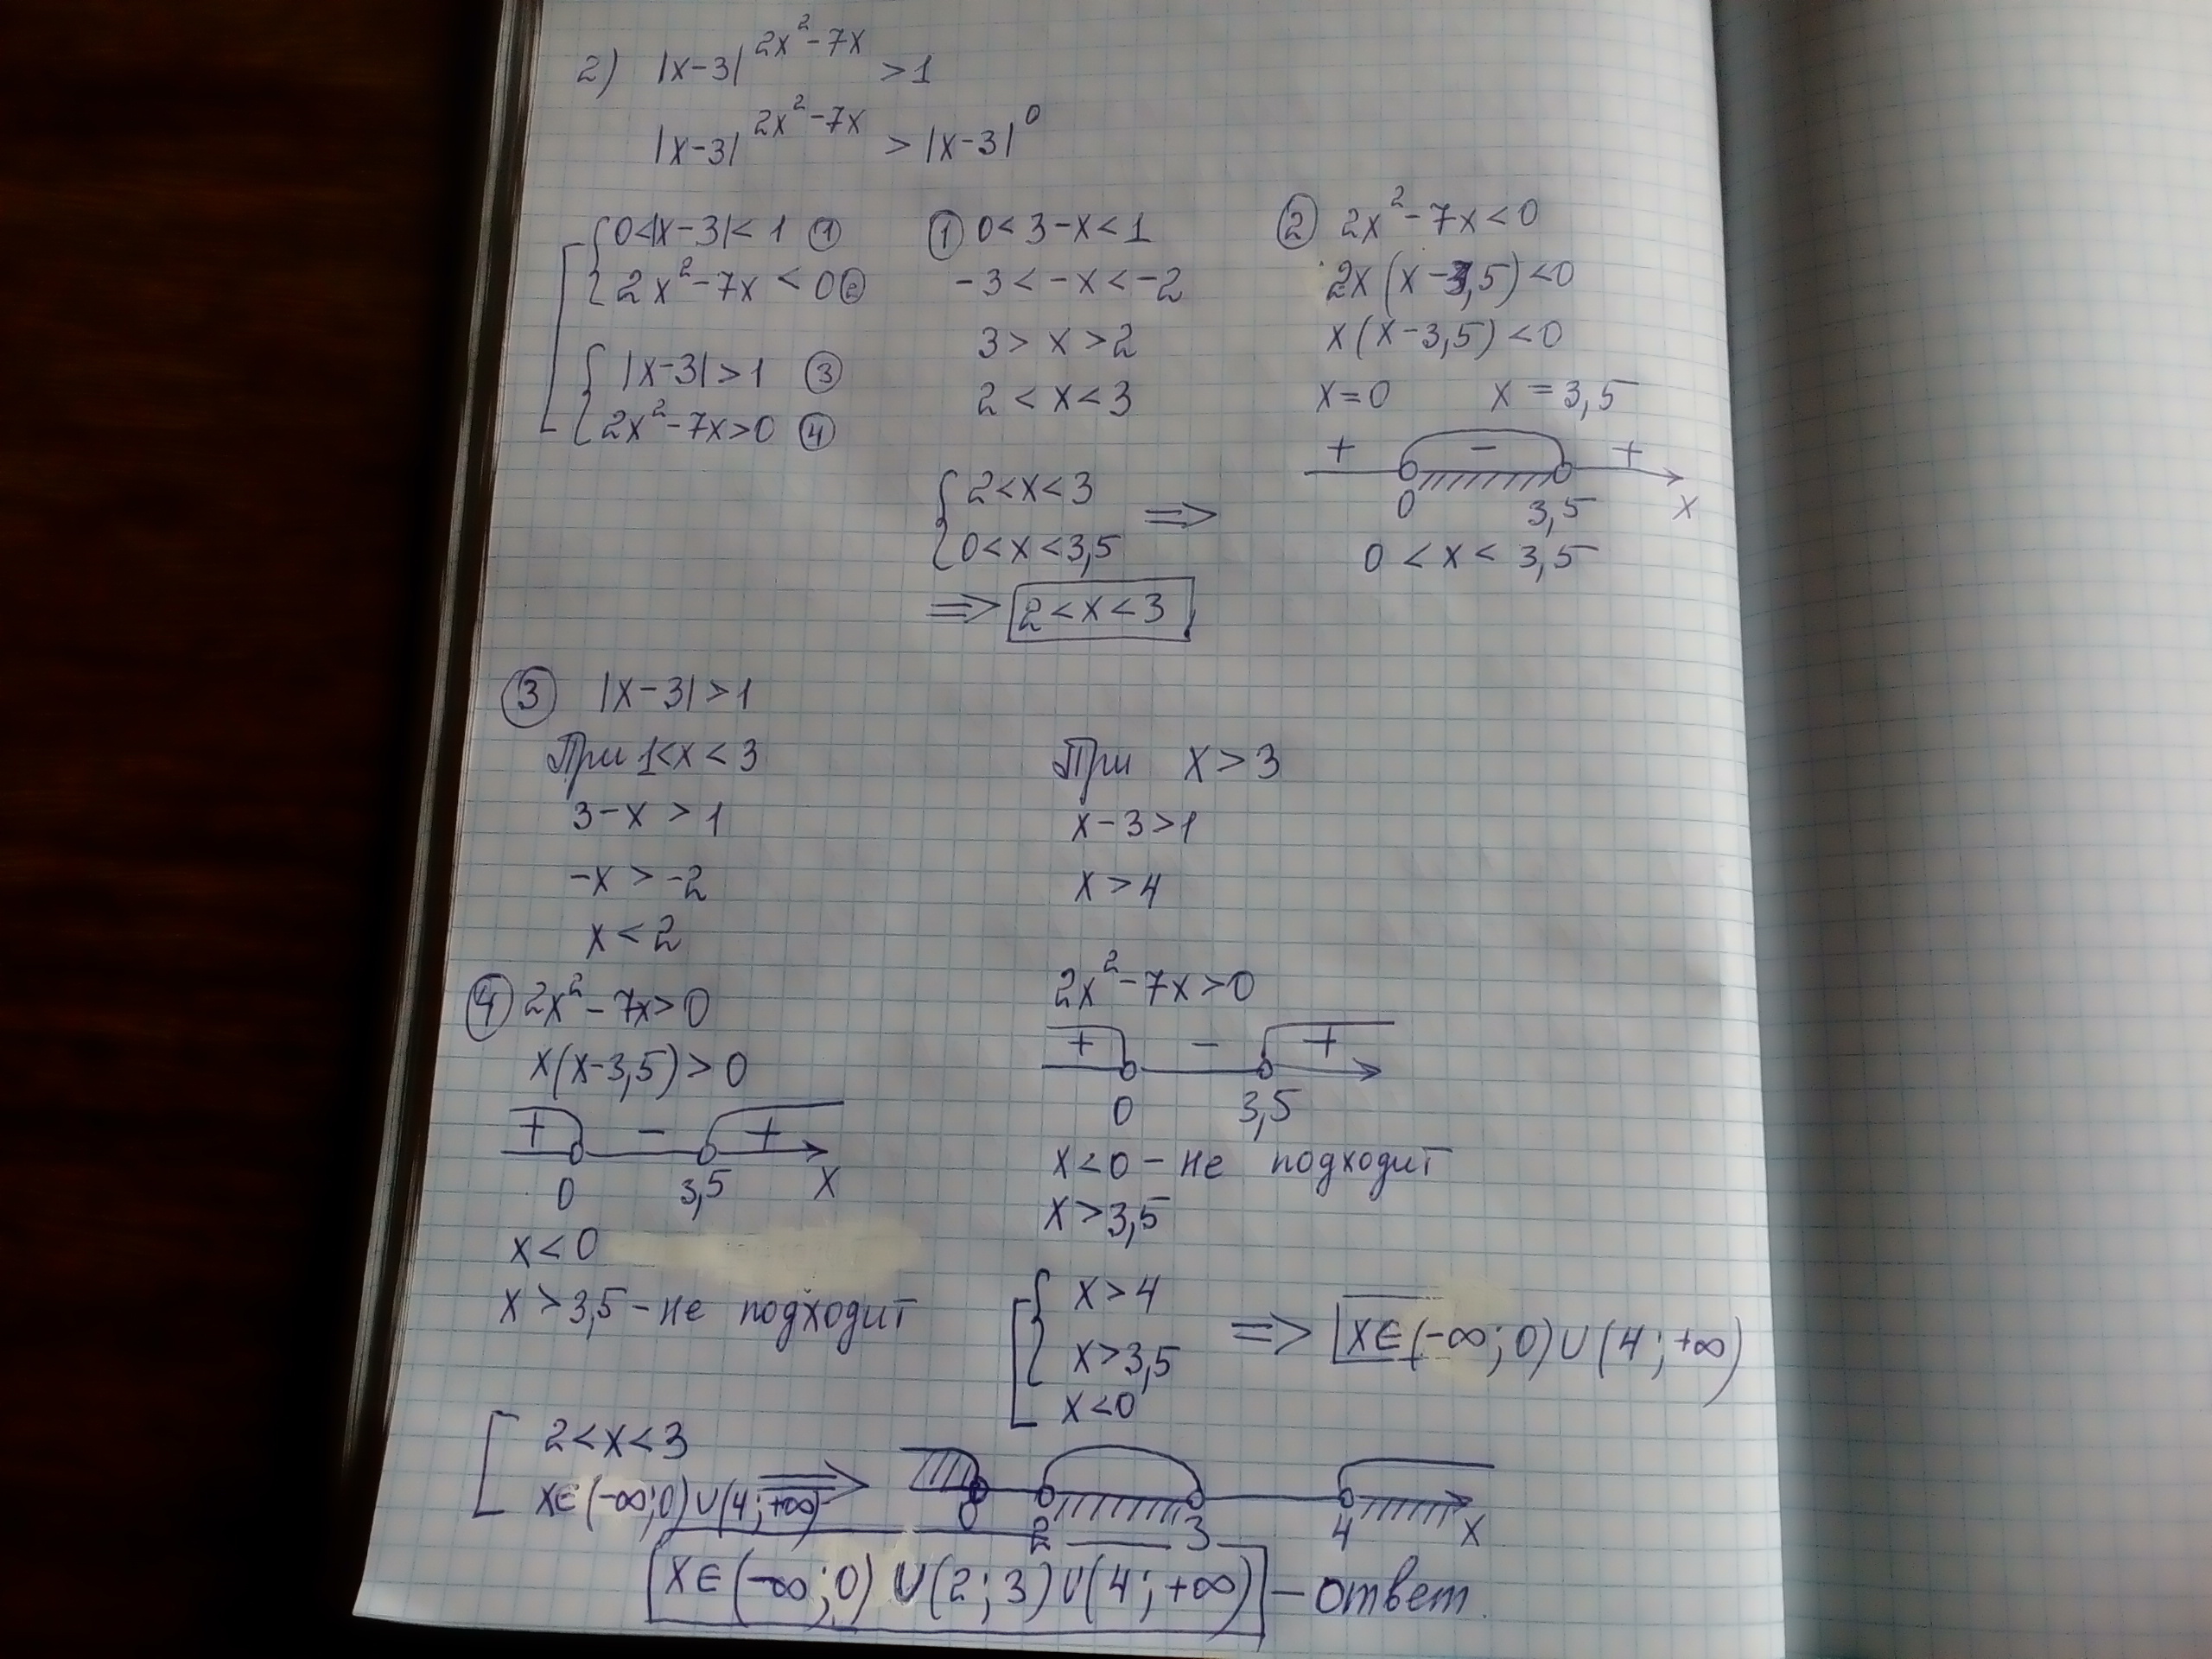 2) |x-3|^{2x²-7x} > 1
|x-3|^{2x²-7x} > |x-3|⁰
0<|x-3|<1 ①
2x²-7x<0 ②
|x-3|>1 ③
2x²-7x>0 ④
① 0<3-x<1
-3<-x<-2
3>x>2
2<x<3
② 2x²-7x<0
2x(x-3,5)<0
x(x-3,5)<0
x=0 x=3,5
+ - +
0 3,5 x
0<x<3,5
{ 2<x<3
0<x<3,5 =>
=> 2<x<3
③ |x-3|>1
При 1<x<3
3-x>1
-x>-2
x<2
При x>3
x-3>1
x>4
④ 2x²-7x>0
x(x-3,5)>0
+ - +
0 3,5 x
x<0
x>3,5 - не подходит
2x²-7x>0
+ - +
0 3,5
x<0 - не подходит
x>3,5
[ { x>4
x>3,5
x<0
=> x∈(-∞;0)∪(4;+∞)
[ 2<x<3
x∈(-∞;0)∪(4;+∞) =>
0 2 3 4 x
x∈(-∞;0)∪(2;3)∪(4;+∞) - ответ.